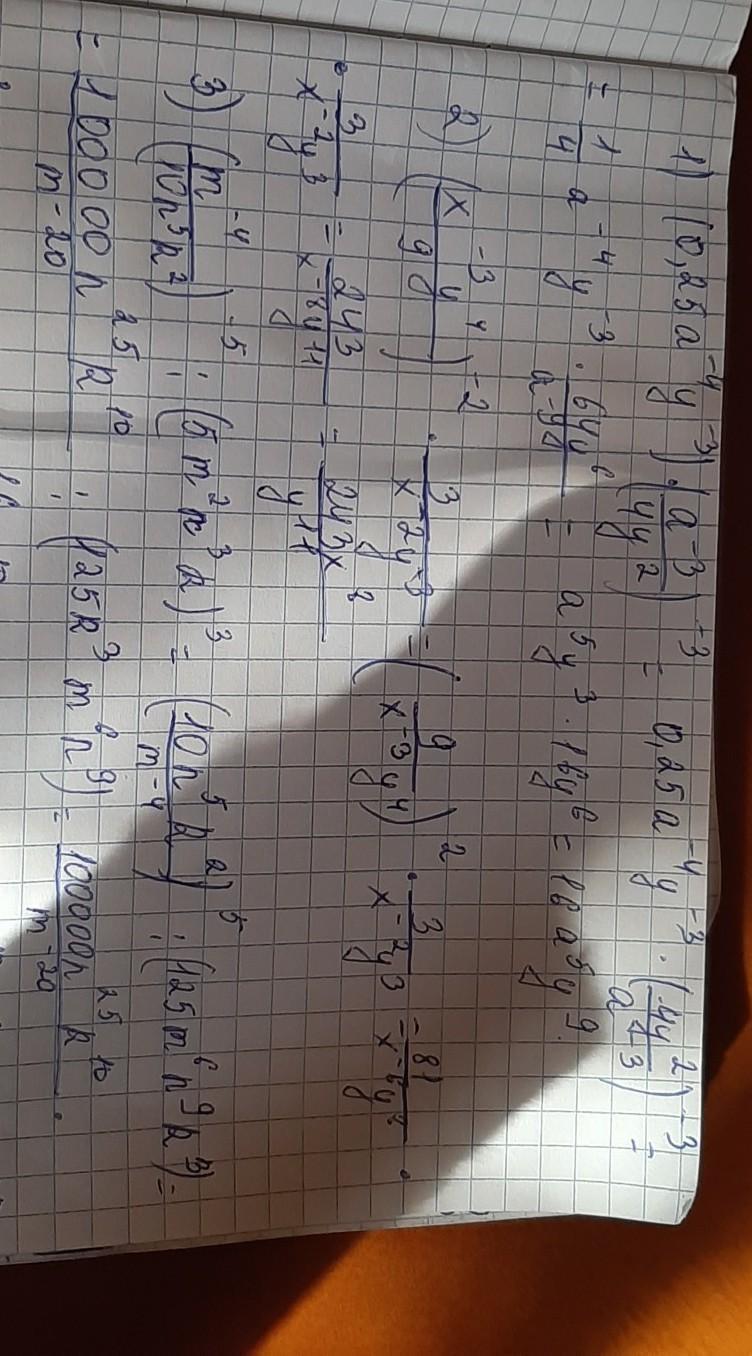 1) (0,25a⁻⁴ y⁻³) · (a⁻³/4y²)⁻³ = 0,25a⁻⁴y⁻³ · (4y²/a⁻³)⁻³ =
= 1/4 a⁻⁴ y⁻³ · 64y⁶/a⁻⁹ = a⁵y³ · 16y⁶ = 16a⁵y⁹.
2) (x⁻³y⁴/9)⁻² · 3/x⁻²y³ = (9/x⁻³y⁴)² · 3/x⁻²y³ = 81/x⁻⁶y⁸ ·
· 3/x⁻²y³ = 243/x⁻⁸y¹¹ = 243x⁸/y¹¹
3) (m⁻⁴/10n⁵k²)⁻⁵ : (5m²n³k)³ = (10n⁵k²/m⁻⁴)⁵ : (125m⁶n⁹k³) =
= 100000n²⁵k¹⁰/m⁻²⁰ : (125k³m⁶n⁹) = 100000n²⁵k¹⁰/m⁻²⁰ ·